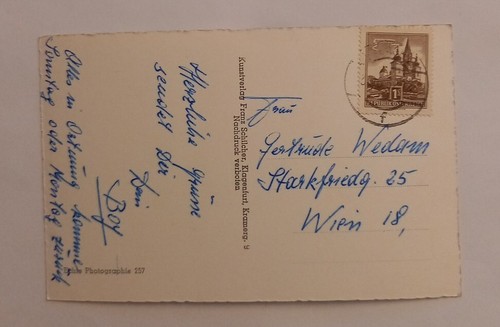 Herzliche Grüsse
sendet Dir
Dein
Boy
Alles in Ordnung komme
Sonntag oder Montag zurück
Echte Photographie 557
Kunstverlag Franz Schilcher, Klagenfurt, Kramerg. 9
Nachdruck verboten
Frau
Gertrude Wedam
Starkfriedg. 25
Wien 18,
1S
REPUBLIK